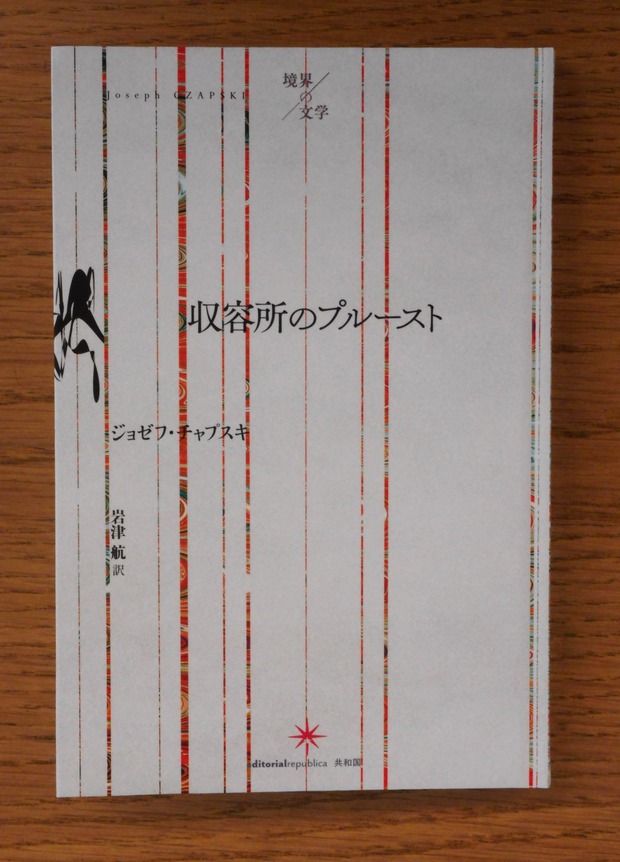 Joseph CZAPSKI
境界
の
文学
収容所のプルースト
ジョゼフ・チャプスキ
岩津 航 訳
editorialrepublica 共和国